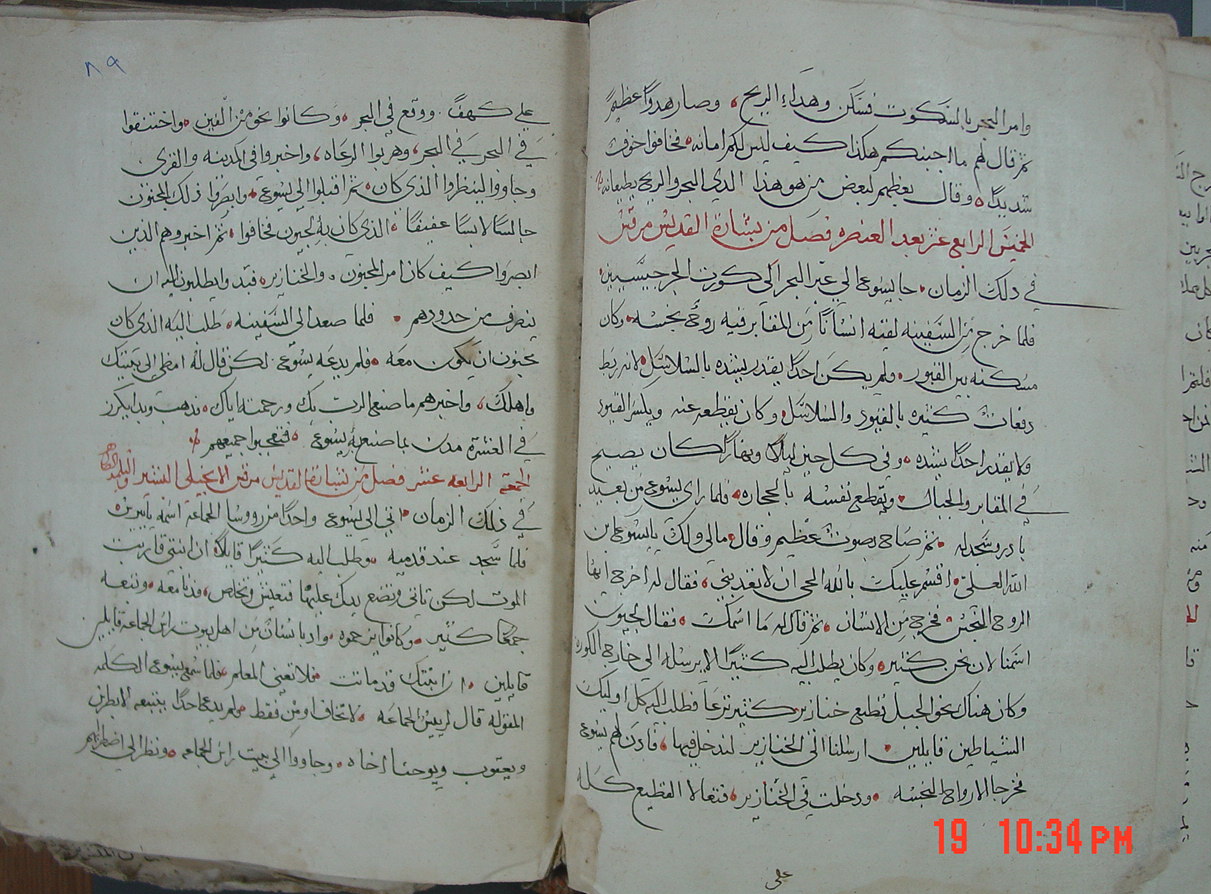 وامر البحر بالسكوت فسكن وهداء الريح، وصار هدوًا عظيم
ثم قال لهم ما اجبنكم هكذا كيف ليس لكم امانه فخافوا خوف
شديدًا وقال بعظهم لبعض من هو هذا الدي البحر والريح يطيعانه
الخميس الرابع عشر بعد العنصره فصل من بشارة القديس مرقس
في دلك الزمان جا يسوع الي عبر البحر الي كورت الجرجيسيين
فلما خرج من السفينه لقيه انسانًا من المقابر فيه روح نجسه وكان
مسكنه بين القبور فلم يكن احدًا يقدر يشده بالسلاسل لانه ربط
دفعات كثيره بالقيود والسلاسل وكان يقطعه عنه ويكسر القيود
فلا يقدر احدًا يشده وفي كل حين ليلًا ونهارًا كان يصيح
في المقابر والجبال ويقطع نفسه بالحجاره فلما راي يسوع من بعيد
بادر وسجد له ثم صاح بصوت عظيم وقال مالي ولك يا يسوع ابن
الله العلي اقسم عليك بالله الحي ان لا تعذبني، فقال له اخرج ايها
الروح النجس فخرج من الانسان ثم قال له ما اسمك فقال لجيون
اسمنا لان نحن كثير وكان يطلب اليه كثيرًا الا يرسله الي خارج الكوره
وكان هناك نحو الجبل قطيع خنازير كثير ترعا فطلب اليه كل اوليك
الشياطين قايلين ارسلنا الي الخنازير لندخل فيها، فادن لهم يسوع
فخرجا الارواح النجسه ودخلت في الخنازير، فتعالا القطيع كله
علي
٨٩
علي كهف ووقع في البحر وكانوا نحو من الفين واختنقوا
في البحر وهربوا الرعاه، واخبروا في المدينه والقري
وجاووا لينظروا الذي كان ثم اقبلوا الي يسوع وابصروا ذلك المجنون
جالسًا لابسًا عفيفًا الذي كان به لجيون فخافوا ثم اخبروهم الذين
ابصروا كيف كان امر المجنون والخنازير فبدوا يطلبون اليه ان
ينصرف من حدودهم فلما صعد الي السفينه طلب اليه الدي كان
مجنون ان يكون معه فلم يدعه يسوع لكن قال له امظي الي بيتك
واهلك، واخبرهم ما صنع الرب بك ورحمته اياك فدهب وبدا يكرز
في العشرة مدن بما صنع به يسوع فتعجبوا جميعهم
الجمعه الرابعه عشر فصل من بشارة القديس مرقس الانجيلي البشير
في دلك الزمان اتي الي يسوع واحدًا من رووسا الجماعه اسمه يايرس
فلما سجد عند قدميه وطلب اليه كثيرًا قايلًا ان ابنتي قاربت
الموت لكن تاتي وتضع يدك عليها فتعيش وتخلص، فدنا معه وتبعه
جمعًا كثير وكانوا يزحموه وادبانسان من اهل بيوت رايس الجماعه قايلين
قايلين ان ابنتك قد ماتت فلا تعني المعلم فلما سمع يسوع الكلمه
المقوله قال لرييس الجماعه لا تخاف اومن فقط ولم يدع احدًا يتبعه الا بطرس
ويعقوب ويوحنا اخاه وجاووا الي بيت رايس الجماعه ونظر الي اضطرابهم
19 10:34 PM